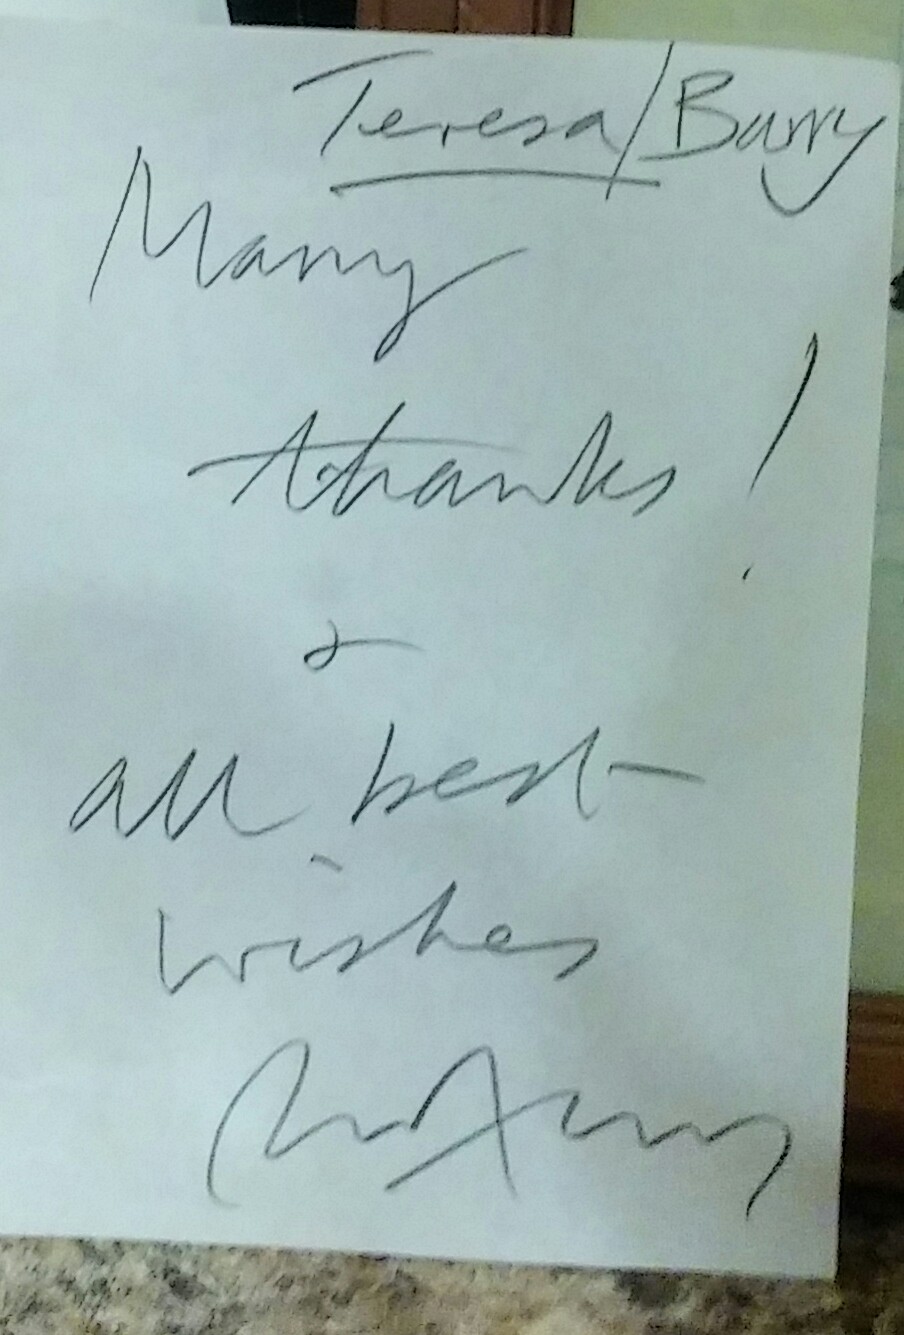 Teresa/Barry
Many
thanks!
&
all best
wishes